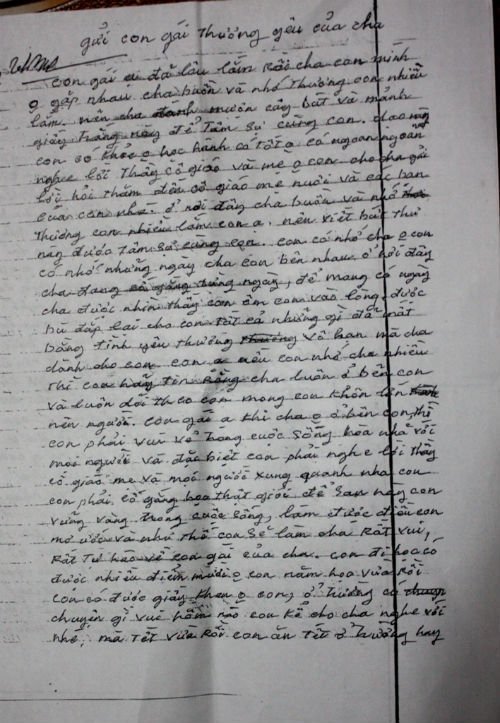 gửi con gái thương yêu của cha
con gái ạ đã lâu lắm rồi cha con mình
o gặp nhau cha buồn và nhớ thương con nhiều
lắm. nên cha đành mượn cây bút và mảnh
giấy trắng này để tâm sự cùng con. dạo này
con có khỏe o học hành có tốt o có ngoan ngoãn
nghe lời thầy cô giáo và mẹ o con. cho cha gửi
lời hỏi thăm đến cô giáo mẹ nuôi và các bạn
của con nhé. ở nơi đây cha buồn và nhớ
thương con nhiều lắm con ạ. nên viết bức thư
này được tâm sự cùng con. con có nhớ cha o con
có nhớ những ngày cha con bên nhau. ở nơi đây
cha đang cố gắng từng ngày, để mong có ngày
cha được nhìn thấy con ôm con vào lòng, được
bù đắp lại cho con tất cả những gì đã mất
bằng tình yêu thương thương vô hạn mà cha
dành cho con. con ạ nếu con nhớ cha nhiều
thì con hãy tin rằng cha luôn ở bên con
và luôn dõi theo con mong con khôn lớn
nên người. con gái ạ khi cha o ở bên con, thì
con phải vui vẻ trong cuộc sống hòa nhã với
mọi người và đặc biết con phải nghe lời thầy
cô giáo mẹ và mọi người xung quanh nha con
con phải cố gắng học thật giỏi để sau này con
vững vàng trong cuộc sống, làm được điều con
mơ ước và như thế con sẽ làm cha rất vui,
rất tự hào về con gái của cha. con đi học có
được nhiều điểm mười o con năm học vừa rồi
con có được giấy khen o con, ở trường có
chuyện gì vui hằm nào con kể cho cha nghe với
nhé, mà tết vừa rồi con ăn tết ở trường hay